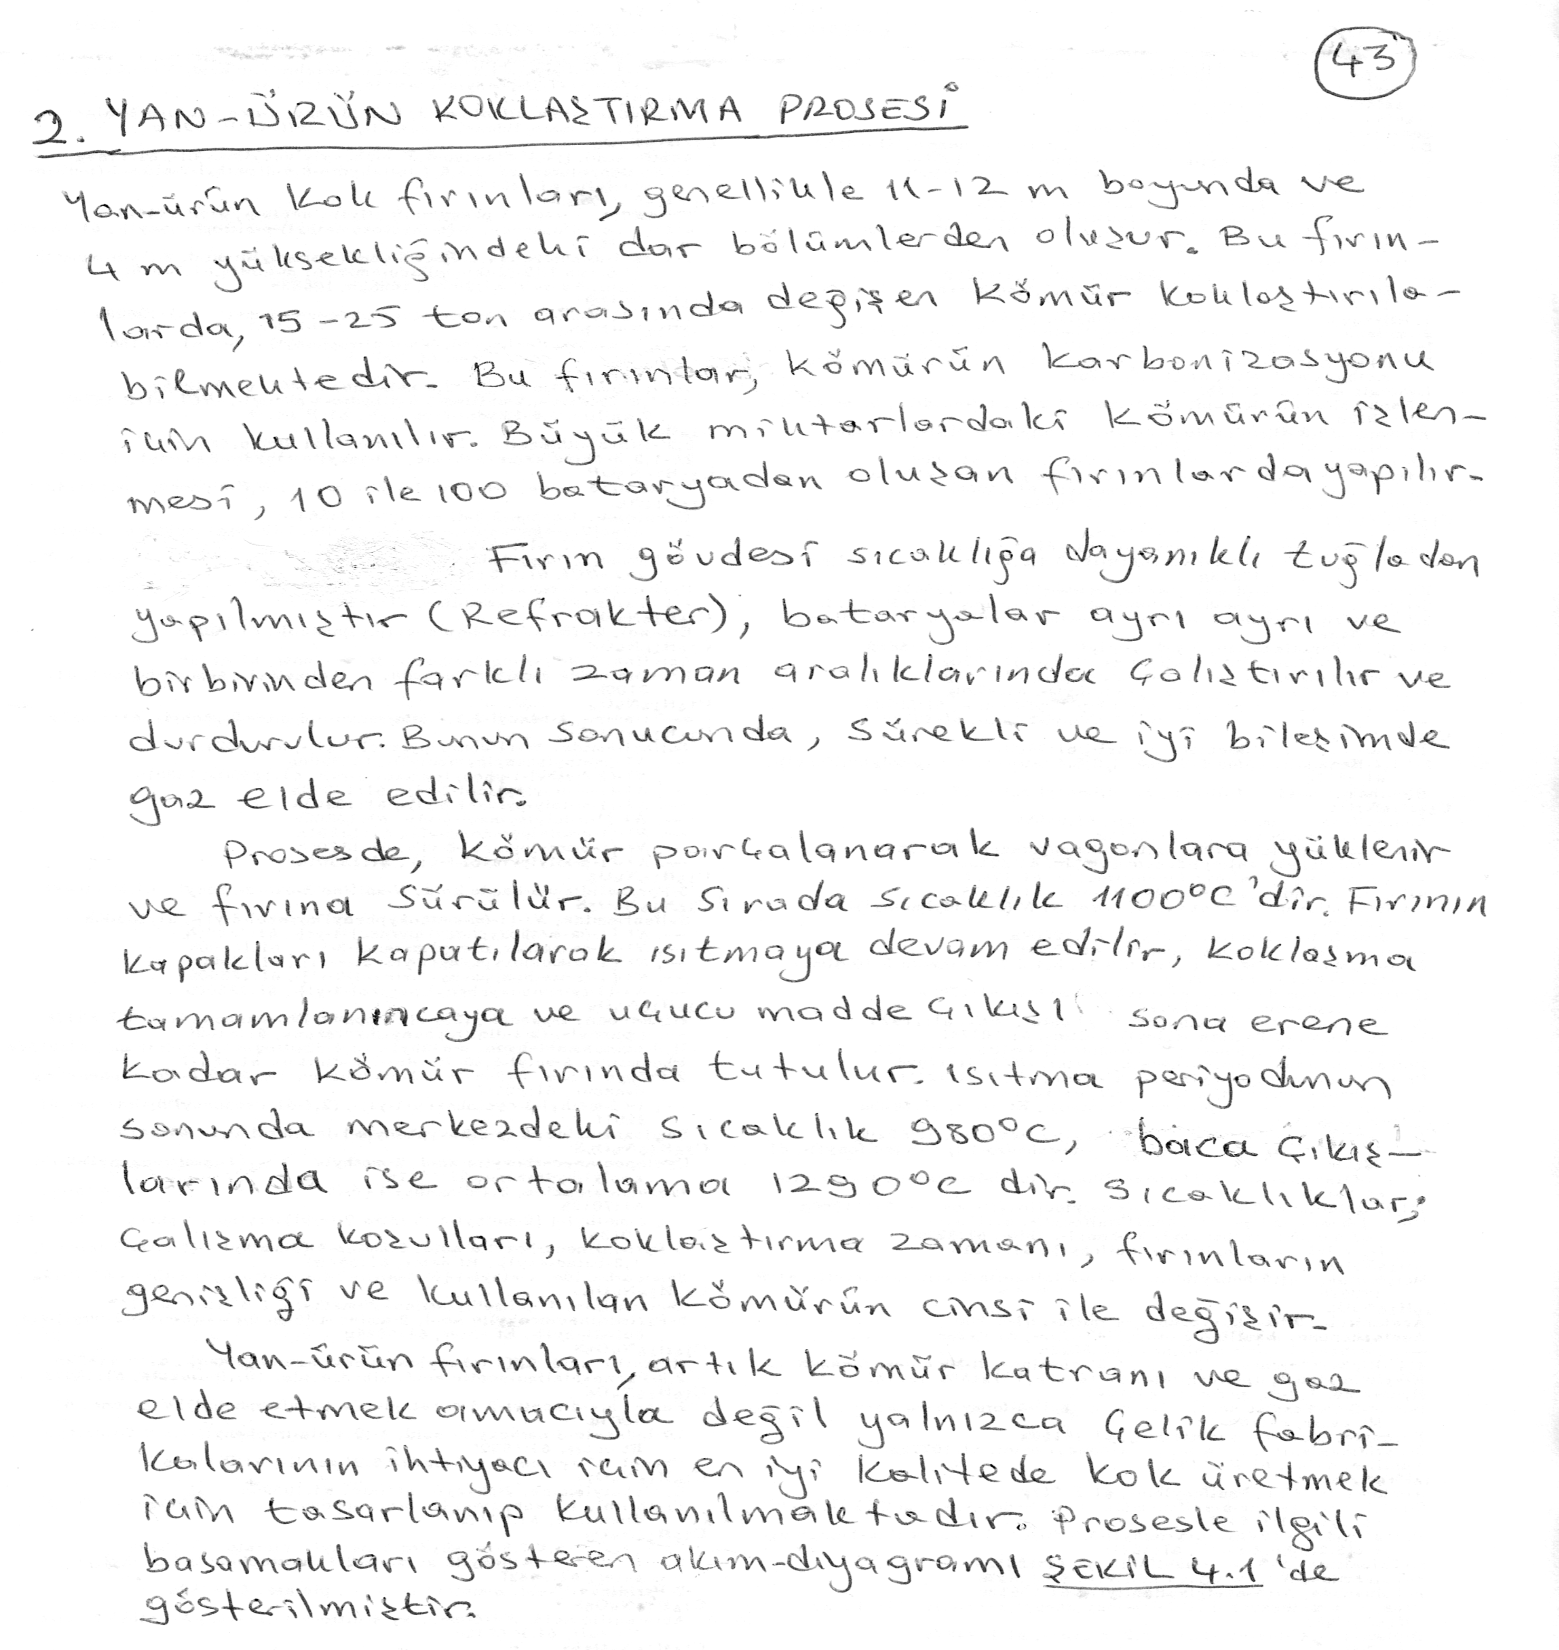 43
2. YAN-ÜRÜN KOKLAŞTIRMA PROSESİ
Yan-ürün kok fırınları, genellikle 11-12 m boyunda ve
4 m yüksekliğindeki dar bölümlerden oluşur. Bu fırın-
larda, 15-25 ton arasında değişen kömür koklaştırıla-
bilmektedir. Bu fırınlar, kömürün karbonizasyonu
için kullanılır. Büyük miktarlardaki kömürün izlen-
mesi, 10 ile 100 bataryadan oluşan fırınlarda yapılır.
Fırın gövdesi sıcaklığa dayanıklı tuğladan
yapılmıştır (Refrakter), bataryalar ayrı ayrı ve
birbirinden farklı zaman aralıklarında çalıştırılır ve
durdurulur. Bunun sonucunda, sürekli ve iyi bileşimde
gaz elde edilir.
Proseste, kömür parçalanarak vagonlara yüklenir
ve fırına sürülür. Bu sırada sıcaklık 1100°C'dir. Fırının
kapakları kapatılarak ısıtmaya devam edilir, koklaşma
tamamlanıncaya ve uçucu madde çıkışı sona erene
kadar kömür fırında tutulur. ısıtma periyodunun
sonunda merkezdeki sıcaklık 980°C, baca çıkış-
larında ise ortalama 1290°C dir. Sıcaklıklar;
çalışma koşulları, koklaştırma zamanı, fırınların
genişliği ve kullanılan kömürün cinsi ile değişir.
Yan-ürün fırınları, artık kömür katranı ve gaz
elde etmek amacıyla değil yalnızca çelik fabri-
kalarının ihtiyacı için en iyi kalitede kok üretmek
için tasarlanıp kullanılmaktadır. Prosesle ilgili
basamakları gösteren akım-diyagramı ŞEKİL 4.1'de
gösterilmiştir.